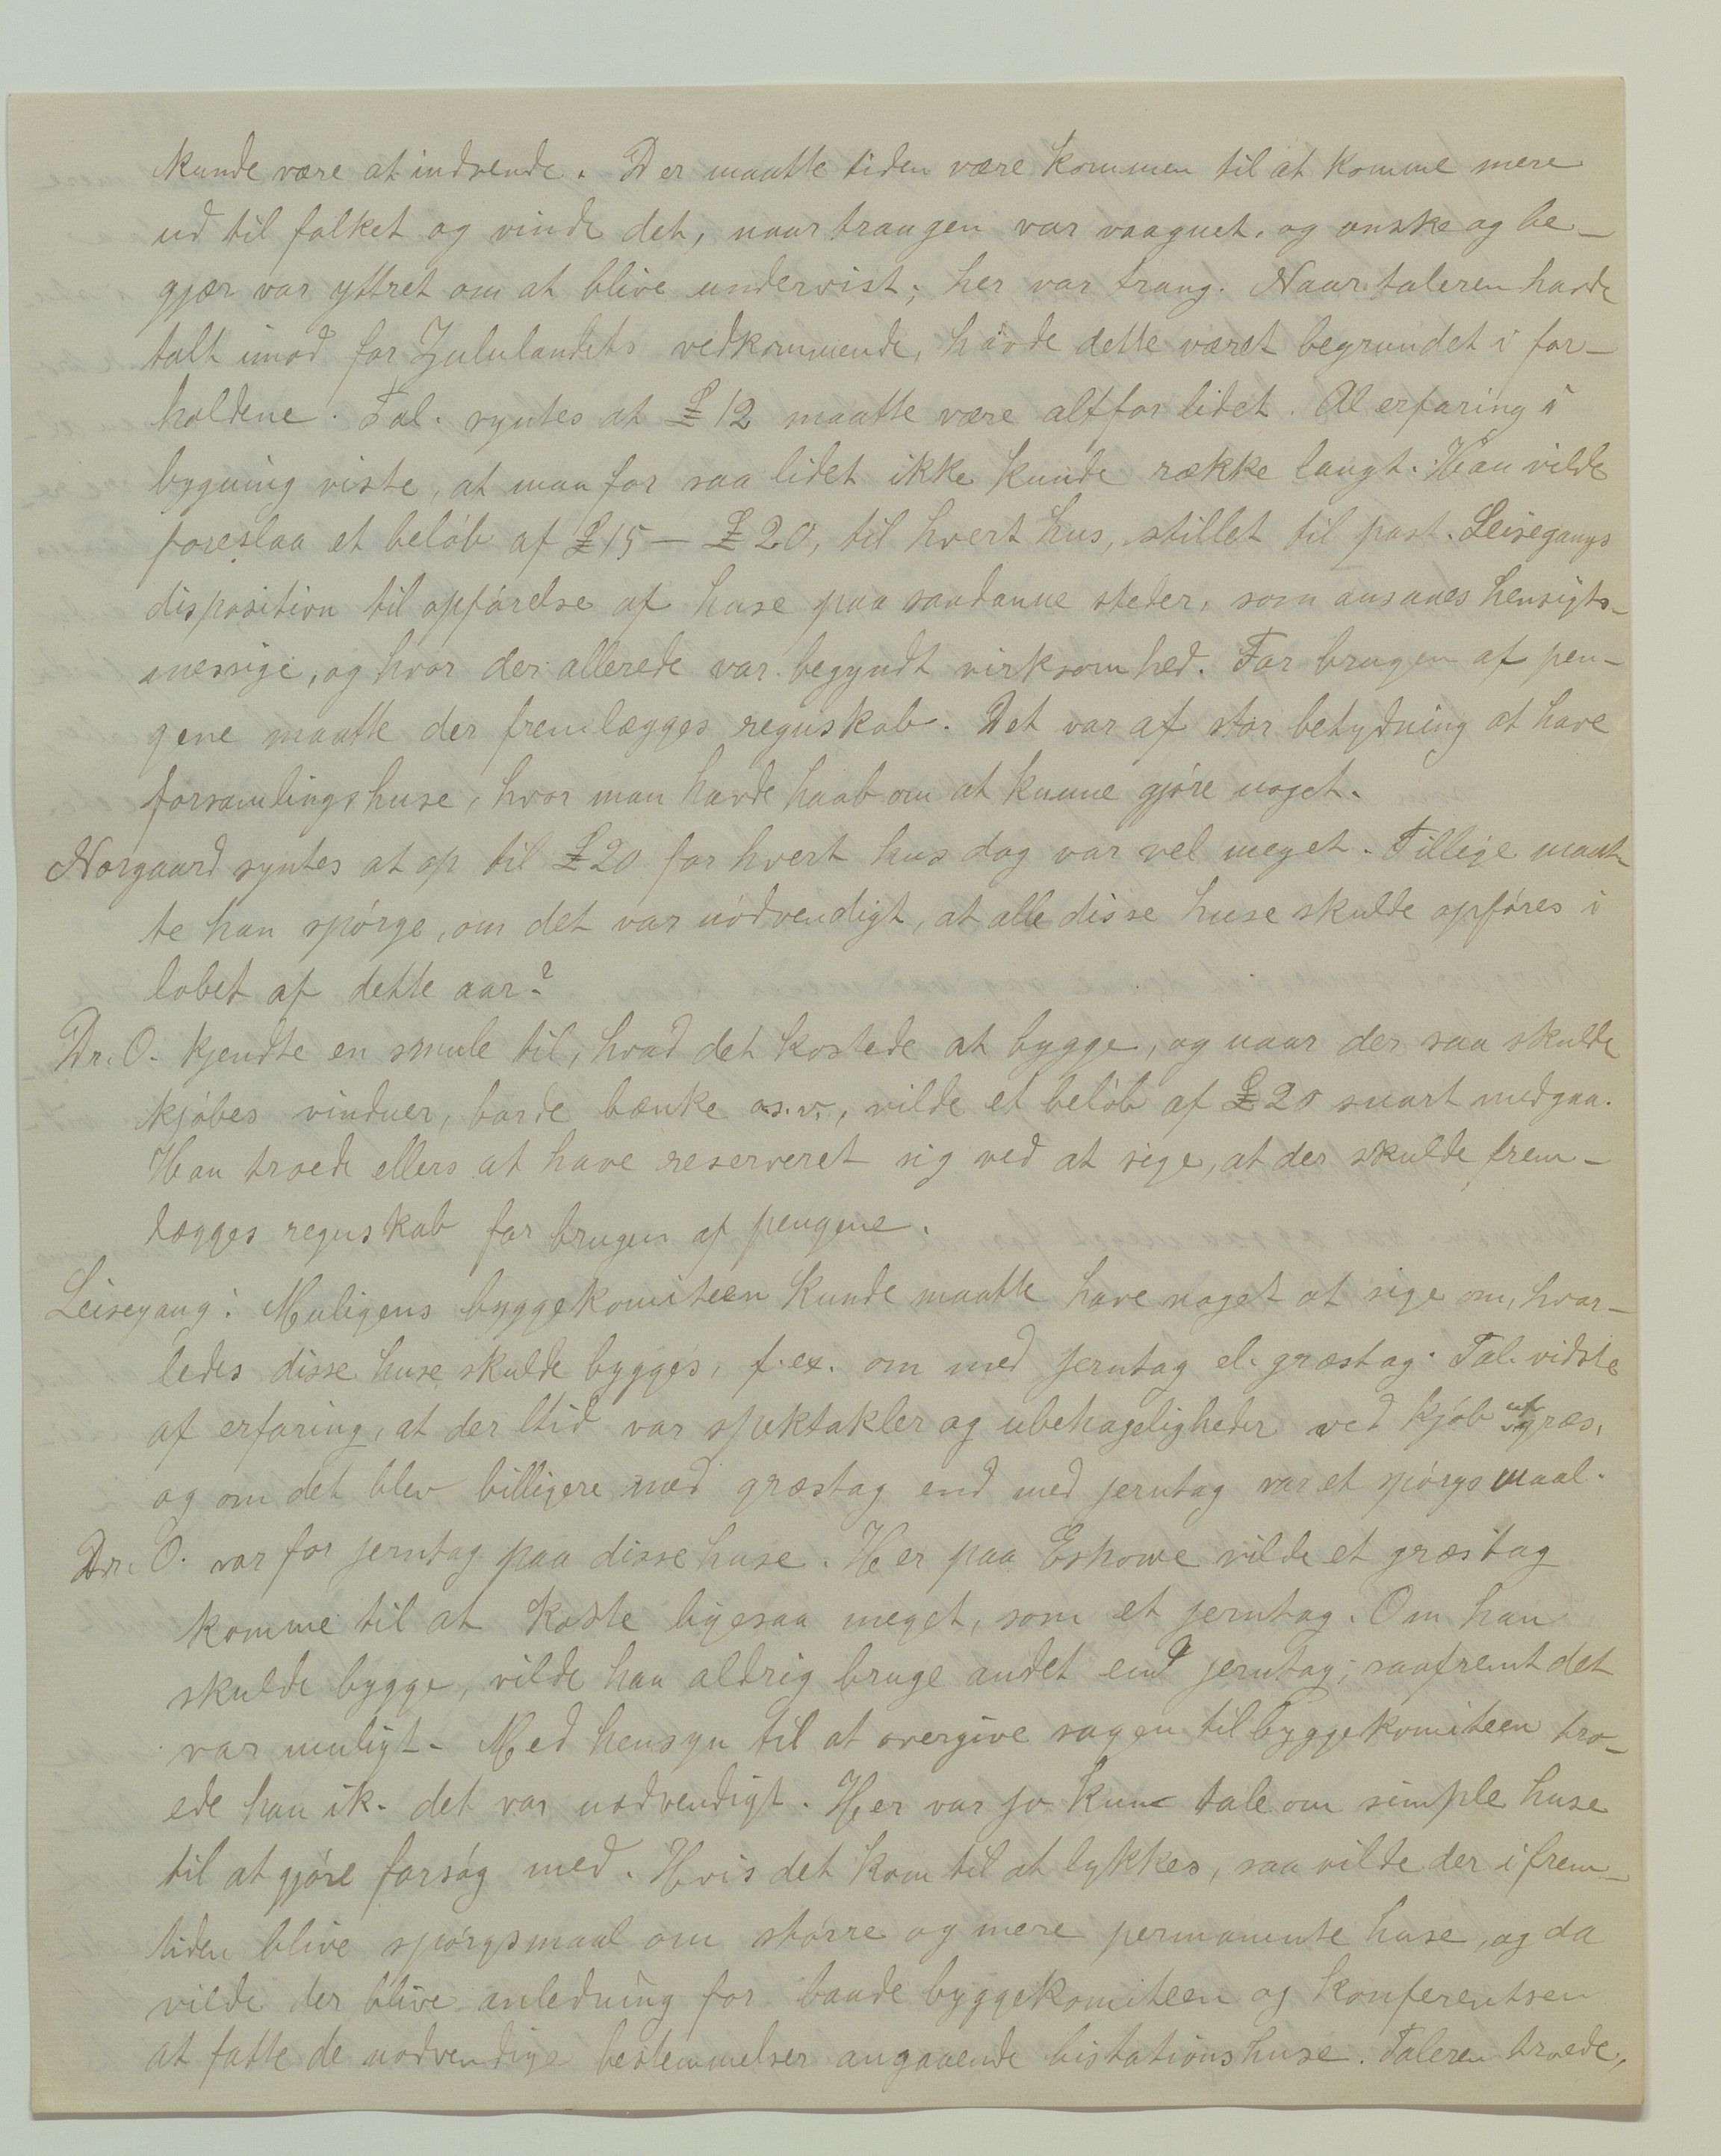 kunde være at indvende. Der maatte tiden være kommen til at komme mere
ud til folket og vinde det, naar trangen var vaagnet, og ønske og be-
gjær var yttret om at blive undervist; her var trang. Naar taleren havde
talt imod for Zululandets vedkommende, havde dette været begrundet i for-
holdene. Tal. syntes at £12 maatte være altfor lidet. Al erfaring i
bygning viste, at man for saa lidet ikke kunde række langt. Han vilde
foreslaa et beløb af £15 — £20, til hvert hus, stillet til past. Leisegangs
disposition til opførelse af huse paa saadanne steder, som ansaaes hensigts-
mæssige, og hvor der allerede var begyndt virksomhed. For brugen af pen-
gene maatte der fremlægges regnskab. Det var af stor betydning at have
forsamlingshuse, hvor man havde haab om at kunne gjøre noget.
Norgaard syntes at op til £20 for hvert hus dog var vel meget. Tillige maat-
te han spørge, om det var nødvendigt, at alle disse huse skulde opføres i
løbet af dette aar?
Dr. O. kjendte en smule til, hvad det kostede at bygge, og naar der saa skulde
kjøbes vinduer, borde bænke o.s.v., vilde et beløb af £20 snart medgaa.
Han troede ellers at have reserveret sig ved at sige, at der skulde frem-
lægges regnskab for brugen af pengene.
Leisegang: Muligens byggekomiteen kunde maatte have noget at sige om, hvor-
ledes disse huse skulde bygges, f. ex. om med jerntag el. græstag. Tal. vidste
af erfaring, at der ltid var spektakler og ubehageligheder ved kjøb af græs,
og om det blev billigere med græstag end med jerntag var et spørgsmaal.
Dr. O. var for jerntag paa disse huse. Her paa Eshowe vilde et græstag
komme til at koste ligesaa meget, som et jerntag. Om han
skulde bygge, vilde han aldrig bruge andet end jerntag, saafremt det
var muligt. Med hensyn til at overgive sagen til byggekomiteen tro-
ede han ik. det var nødvendigt. Her var jo kun tale om simple huse
til at gjøre forsøg med. Hvis det kom til at lykkes, saa vilde der i frem-
tiden blive spørgsmaal om større og mere permanente huse, og da
vilde der blive anledning for baade byggekomiteen og konferentsen
at fatte de nødvendige bestemmelser angaaende bistationshuse. Taleren troede,